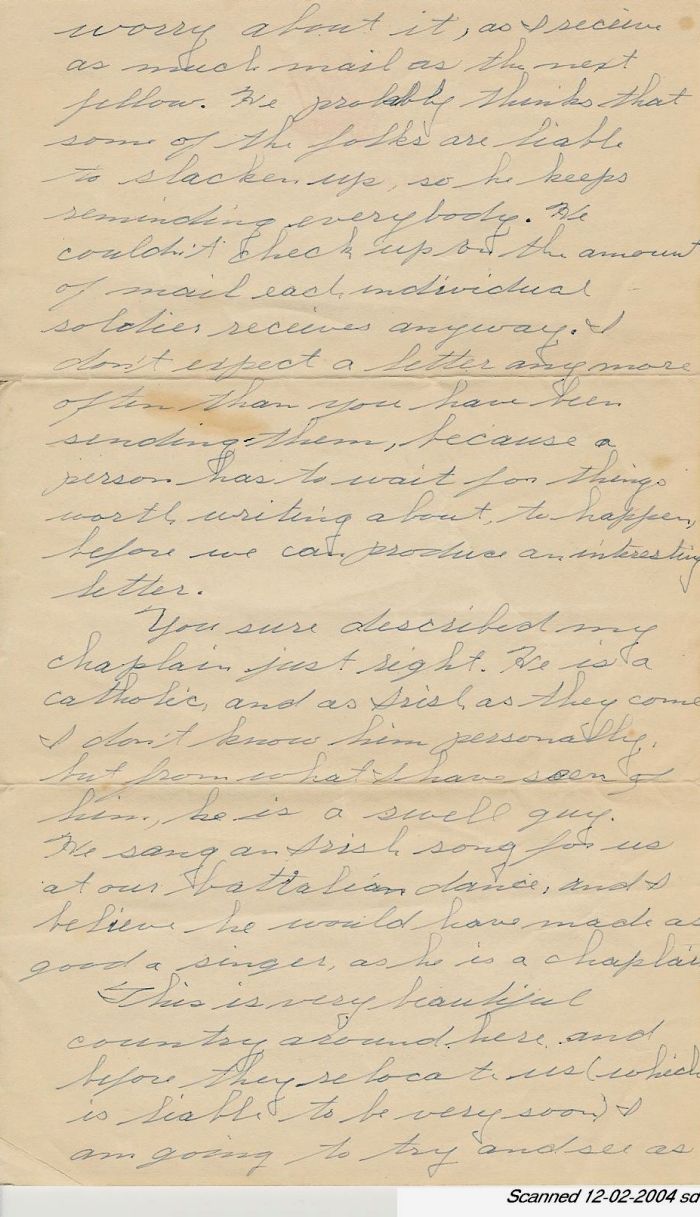 worry about it, as I receive
as much mail as the next
fellow. He probably thinks that
some of the folks are liable
to slacken up, so he keeps
reminding everybody. He
couldn't check up on the amount
of mail each individual
soldier receives anyway. I
don't expect a letter any more
often than you have been
sending them, because a
person has to wait for things
worth writing about, to happen,
before we can produce an interesting
letter.
You sure described my
chaplain just right. He is a
catholic, and as Irish as they come
I don't know him personally,
but from what I have seen of
him, he is a swell guy.
He sang an Irish song for us
at our battalian dance, and I
believe he would have made as
good a singer, as he is a chaplain
This is very beautiful
country around here and
before they relocate us (which
is liable to be very soon) I
am going to try and see as
Scanned 12-02-2004 sd